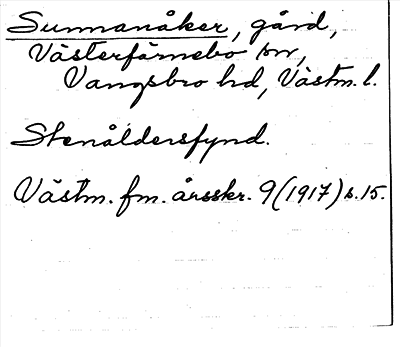 Sunnanåker, gård,
Västerfärnebo sn,
Vangsbro hd, Västm. l.
Stenåldersfynd.
Västm. fm. årsskr. 9 (1917) s. 15.